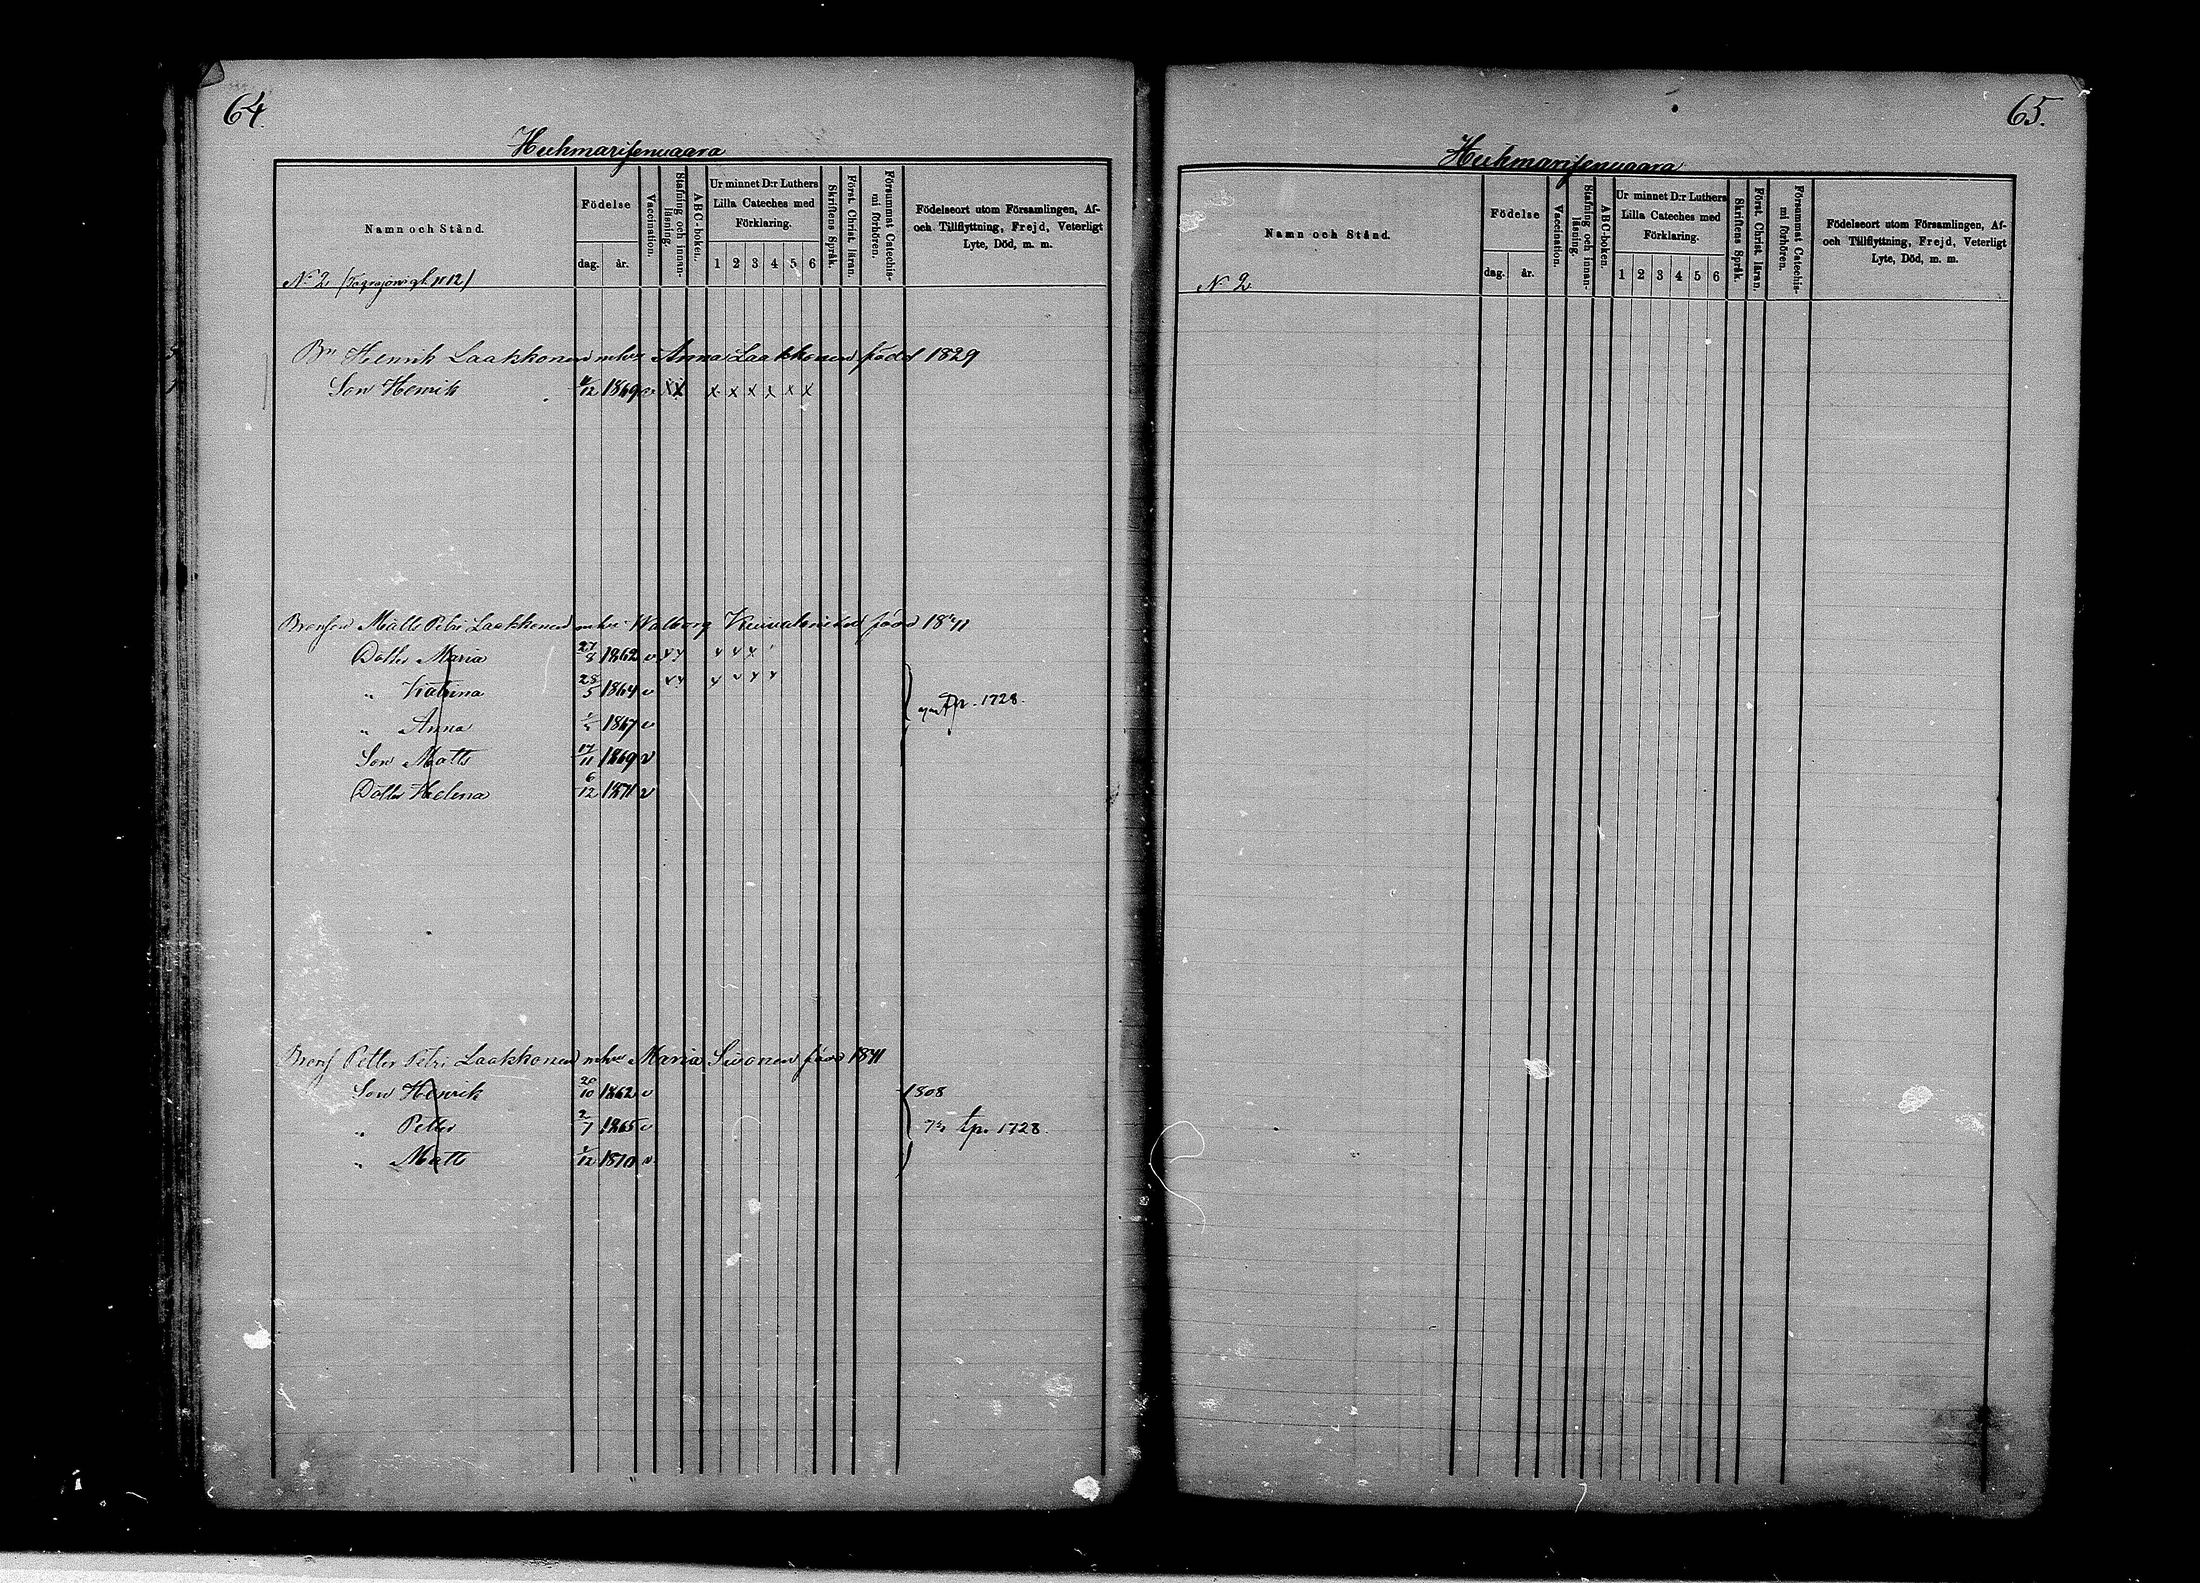 64.
Huhmarisenvaara
Namn och Stånd.
Födelse
dag. år.
Vaccination.
Stafning och innan-
läsning.
ABC-boken.
Ur minnet D:r Luthers
Lilla Cateches med
Förklaring.
1 2 3 4 5 6
Skriftens Språk.
Först. Christ. läran.
Försummat Catechis-
mi förhören.
Födelseort utom Församlingen, Af-
och Tillflyttning, Frejd, Veterligt
Lyte, Död, m. m.
N 2
Bn Henrik Laakkonen mhu Anna Laakkonen född 1829
Son Henrik 12 1869 v x x x x x x x x
Matts Petri Laakkonen mhu Walborg född 1841
Dotter Maria 27/8 1862 v x x x x x
" Katrina 28/5 1864 v x x x v x x
" Anna 1867 v
Son Matts 17/11 1869 v
Dotter Helena 6/12 1871 v
1728.
Petter Petri Laakkonen mhu Maria Sivonen född 1841
Son Henrik 20/10 1862 v
1808
" Petter 2/7 1865 v
tp. 1728.
" Matts 12 1870 v
65.
Huhmarisenvaara
Namn och Stånd.
Födelse
dag. år.
Vaccination.
Stafning och innan-
läsning.
ABC-boken.
Ur minnet D:r Luthers
Lilla Cateches med
Förklaring.
1 2 3 4 5 6
Skriftens Språk.
Först. Christ. läran.
Försummat Catechis-
mi förhören.
Födelseort utom Församlingen, Af-
och Tillflyttning, Frejd, Veterligt
Lyte, Död, m. m.
N 2